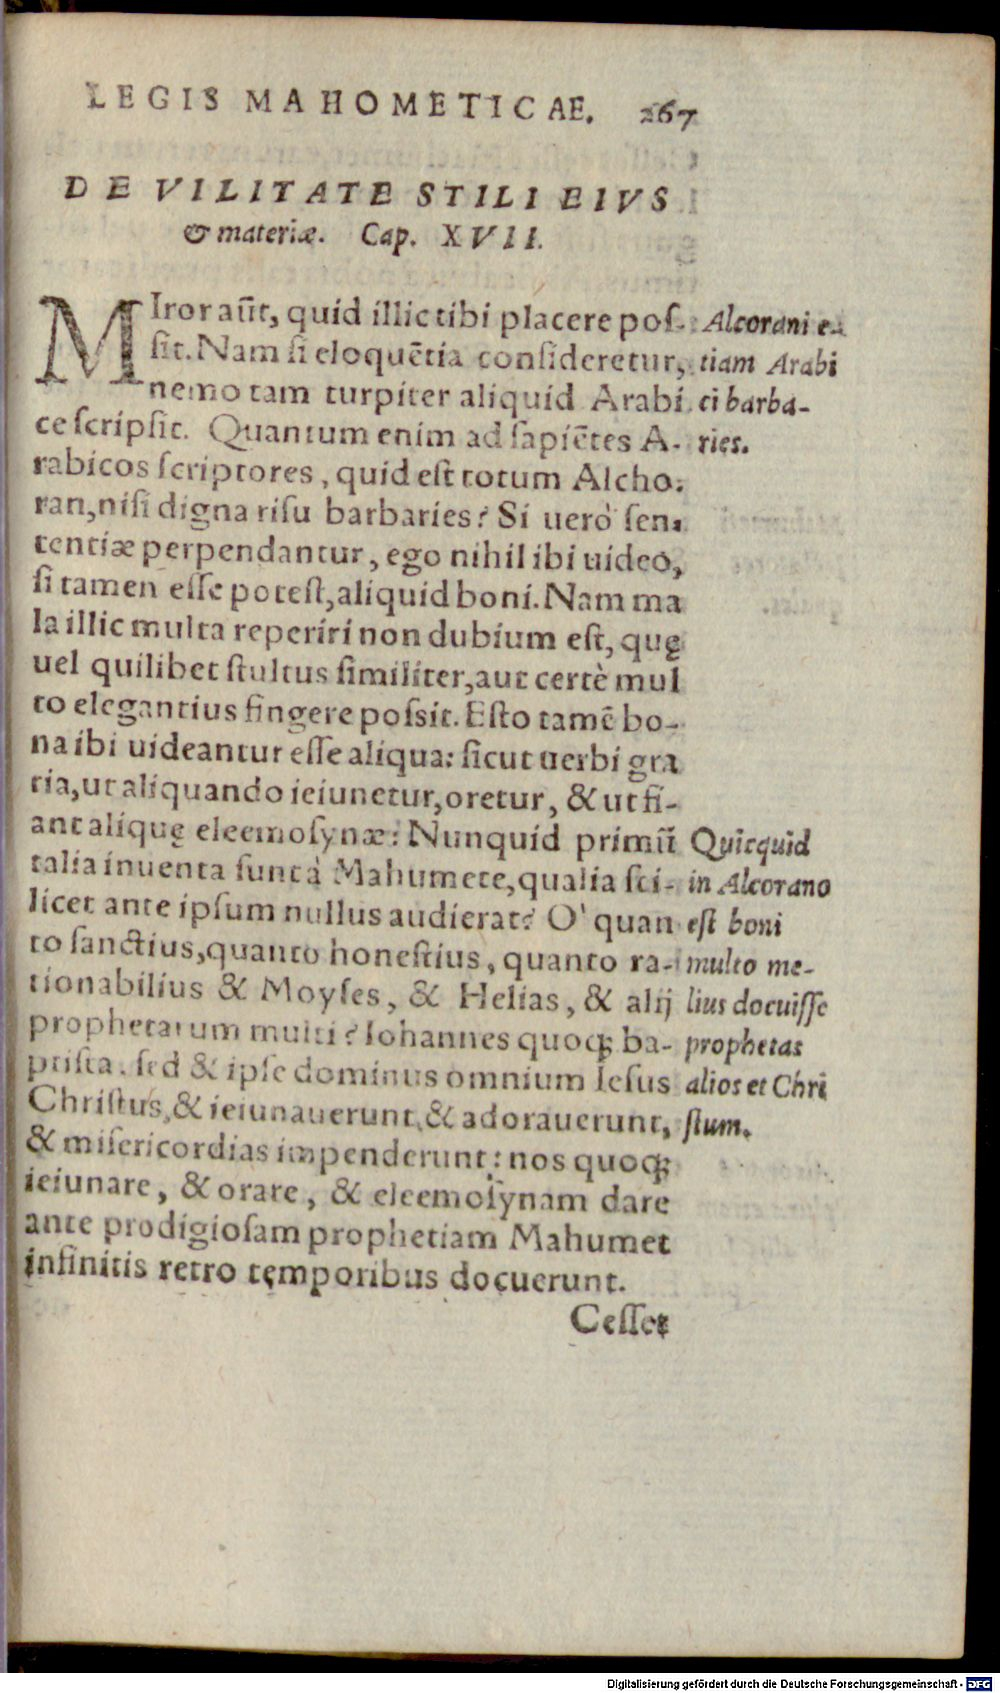 LEGIS MAHOMETICAE. 267
DE VILITATE STILI EIVS
& materiæ. Cap. XVII.
MIror aūt, quid illic tibi placere pos-
sit. Nam si eloquētia consideretur,
nemo tam turpiter aliquid Arabi
ce scripsit. Quantum enim ad sapiētes A-
rabicos scriptores, quid est totum Alcho-
ran, nisi digna risu barbaries? Si uerò sen-
tentiæ perpendantur, ego nihil ibi uideo,
si tamen esse potest, aliquid boni. Nam ma
la illic multa reperiri non dubium est, quę
uel quilibet stultus similiter, aut certè mul
to elegantius fingere possit. Esto tamē bo-
na ibi uideantur esse aliqua: sicut uerbi gra
tia, ut aliquando ieiunetur, oretur, & ut fi-
ant alique̜ eleemosynæ: Nunquid primū
talia inuenta sunt à Mahumete, qualia sci-
licet ante ipsum nullus audierat? O' quan
to sanctius, quanto honestius, quanto ra-
tionabilius & Moyses, & Helias, & alij
prophetarum multi? Iohannes quoq; ba-
ptista. sed & ipse dominus omnium Iesus
Christus, & ieiunauerunt, & adorauerunt,
& misericordias impenderunt: nos quoq;
ieiunare, & orare, & eleemosynam dare
ante prodigiosam prophetiam Mahumet
infinitis retro temporibus docuerunt.
Cesset
Alcorani e-
tiam Arabi
ci barba-
ries.
Quicquid
in Alcorano
est boni
multo me-
lius docuisse
prophetas
alios et Chri
stum.
Digitalisierung gefördert durch die Deutsche Forschungsgemeinschaft - DFG